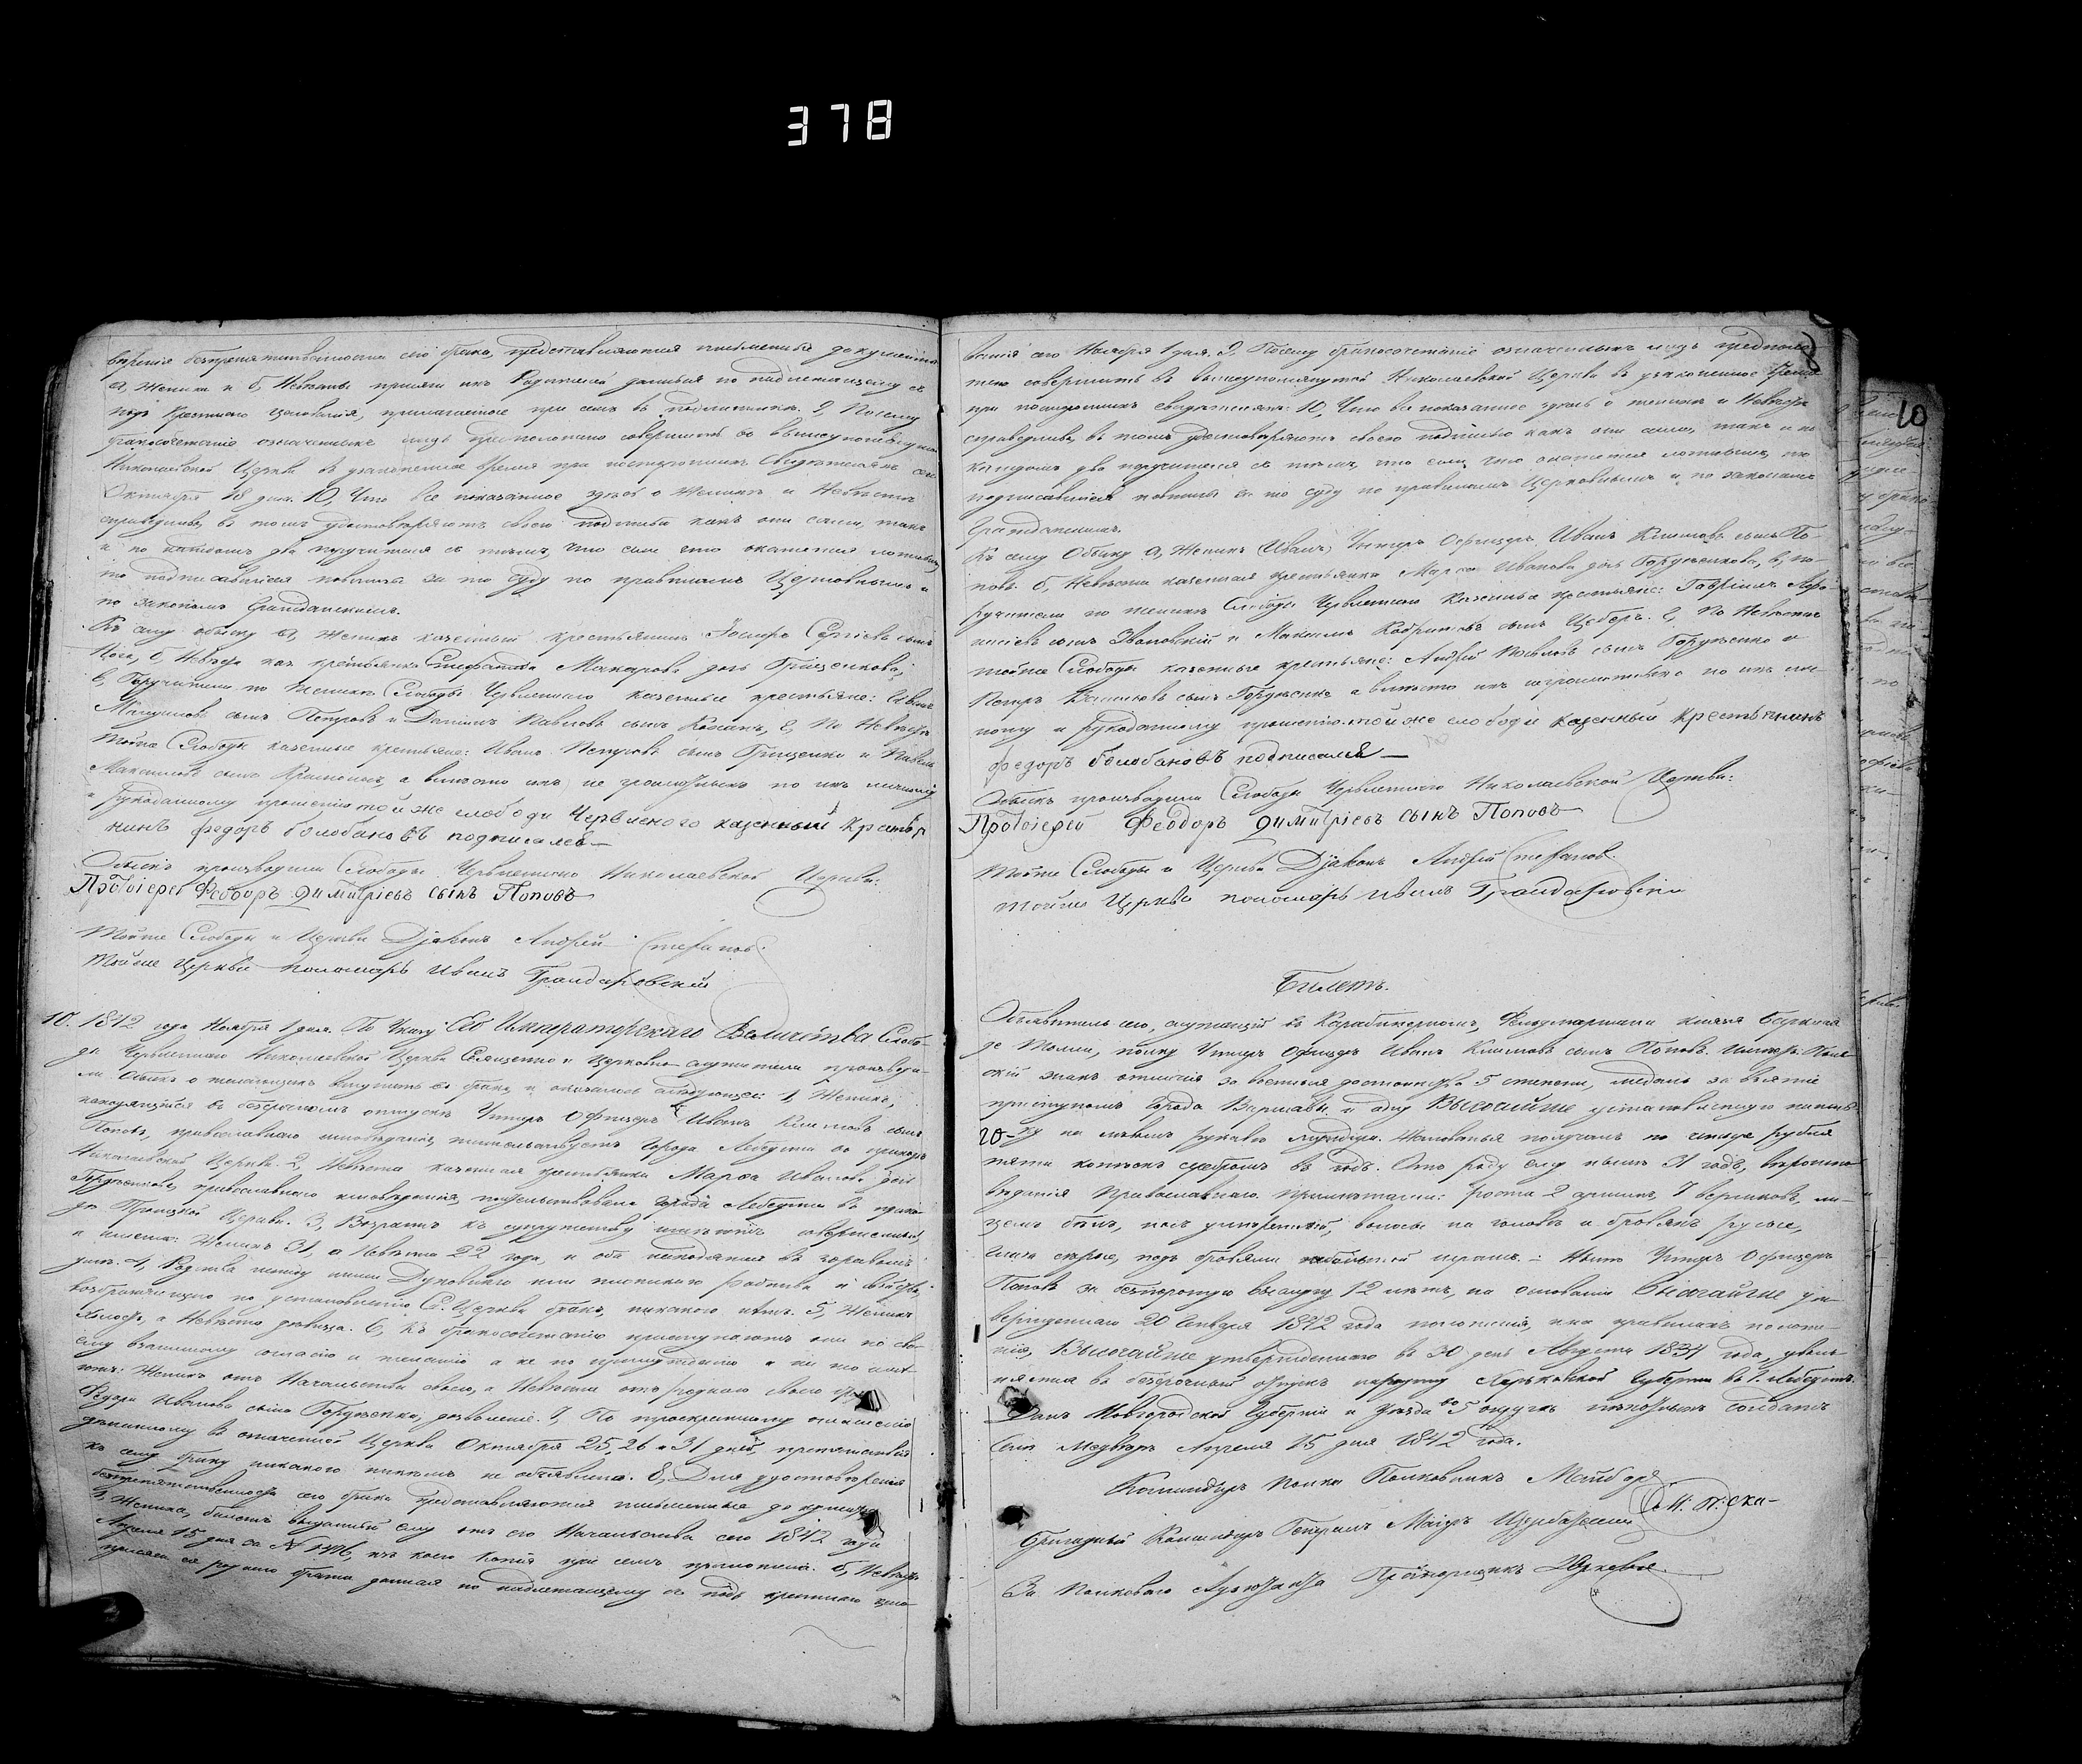 378
вѣренія безпрепятственности сего брака, представляются письменные документы
а, Жениха и б, Невѣсты присяги ихъ Родителей данныя по надлежащему съ
подъ Крестнаго цѣлованія, прилагаемое при семъ въ подлинникѣ. 9, Посему
бракосочетаніе означенныхъ лицъ предположено совершить въ вышеупомянутой
Николаевской Церкви въ узаконенное время при постороннихъ Свидѣтеляхъ сего
Октября 18 дня. 10, Что все показанное здѣсь о Женихѣ и Невѣстѣ
справедливо, въ томъ удостовѣряютъ своею подписью какъ они сами, такъ
и по каждомъ два поручителя съ тѣмъ, что если что окажется ложнымъ,
то подписавшіеся повинны за то суду по правиламъ Церковнымъ и
по законамъ Гражданскимъ.
Къ сему обыску а, Женихъ казенный крестьянинъ Іосифъ Сергіевъ сынъ
б, Невѣста каз. крестьянка Стефанида Макарова дочь Грищенкова;
в, Поручители по Женихѣ Слободы Червленнаго казенные крестьяне:
сынъ Петровъ и Даніилъ Павловъ сынъ г, По Невѣстѣ
тойже Слободы казенные крестьяне: Иванъ Петровъ сынъ Грищенко и Павелъ
Максимовъ сынъ а вмѣсто ихъ не грамотныхъ по ихъ личному
и рукоданному прошенію той же слободи Червленого казенный Крестья
нинъ федоръ болобановъ подписался
Обыскъ производили Слободы Червленнаго Николаевской Церкви:
Протоіерей Феодоръ Димитріевъ сынъ Поповъ
Тойже Слободы и Церкви Діаконъ Андрей Стефановъ.
Тойже Церкви пономарь Иванъ Грандаровскій
10. 1842 года Ноября 1 дня. По Указу Его Императорскаго Величества Слобо-
ды Червленнаго Николаевской Церкви Священно и Церковно служители производи-
ли обыскъ о желающихъ вступить въ бракъ, и оказалось слѣдующее: 1, Женихъ,
находящійся въ безсрочномъ отпускѣ Унтеръ Офицеръ Иванъ Климовъ сынъ
Поповъ, православнаго исповѣданія, жительствуетъ города Лебедина въ приходѣ
Николаевской Церкви. 2, Невѣста казенная крестьянка Марѳа Иванова дочь
Гордѣенкова, православнаго исповѣданія, жительствовала города Лебедина въ прихо-
дѣ Троицкой Церкви. 3, Возрастъ къ супружеству имѣютъ совершенный,
и именно: Женихъ 31, а Невѣста 22 года, и оба находятся въ здравомъ
умѣ. 4, Родства между ними Духовнаго или плотскаго родства и свойства,
возбраняющаго по установленію Св. Церкви бракъ, никакого нѣтъ. 5, Женихъ
холостъ, а Невѣста дѣвица. 6, Къ бракосочетанію приступаютъ они по сво-
ему взаимному согласію и желанію а не по принужденію и на то имѣ-
ютъ: Женихъ отъ Начальства своего, а Невѣста отъ роднаго своего брата
Федора Иванова сына Гордѣенка, дозволеніе. 7, По троекратному оглашенію
дѣланному въ означенной Церкви Октября 25, 26 и 31 дней, препятствія
къ сему браку никакого никѣмъ не объявлено. 8, Для удостовѣренія
безпрепятственности сего брака представляются письменные документы
а, Жениха, билетъ выданный ему отъ его Начальства сего 1842 года
Апрѣля 15 дня за № изъ коего копія при семъ приложена. б, Невѣсты
присяга ея роднаго брата данная по надлежащему съ подъ крестнаго цѣло-
ванія сего Ноября 1 дня. 9, Посему бракосочетаніе означенныхъ лицъ предполо-
жено совершить въ вышеупомянутой Николаевской Церкви въ узаконенное время
при постороннихъ свидѣтеляхъ. 10, Что все показанное здѣсь о женихѣ и Невѣстѣ
справедливо, въ томъ удостовѣряютъ своею подписью какъ они сами, такъ и по
каждомъ два поручителя съ тѣмъ, что если что окажется ложнымъ, то
подписавшіеся повинны за то суду по правиламъ Церковнымъ и по законамъ
Гражданскимъ.
Къ сему Обыску а, Женихъ (Иванъ) Унтеръ Офицеръ Иванъ Климовъ сынъ По-
повъ б, Невѣста казенная крестьянка Марѳа Иванова дочь Гордѣенкова, в, по-
ручители по женихѣ Слободы Червленнаго Казенные крестьяне: Гавріилъ
сынъ и Максимъ сынъ г, По Невѣстѣ
тойже Слободы казенные крестьяне: Андрей Павловъ сынъ Гордѣенко и
Петръ сынъ Гордѣенко а вмѣсто ихъ неграмотныхъ по ихъ лич-
ному и рукоданному прошенію той же слободи казенный крестьянинъ
федоръ болобановъ подписался
Обыскъ производили Слободы Червленнаго Николаевской Церкви:
Протоіерей Феодоръ Димитріевъ сынъ Поповъ
Тойже Слободы и Церкви Діаконъ Андрей Стефановъ.
Тойже Церкви пономарь Иванъ Грандаровскій
Билетъ.
Объявитель сего, служащій въ Карабинерномъ, Фельдмаршала князя Барклая
де Толли, полку Унтеръ Офицеръ Иванъ Климовъ сынъ Поповъ. имѣетъ: Поль-
скій знакъ отличія за военныя достоинства 5 степени, медаль за взятіе
приступомъ Города Варшавы и одну Высочайше установленную нашив-
ку на лѣвомъ рукавѣ мундира. Жалованья получалъ по рубля
пяти копѣекъ серебромъ въ годъ. Отъ роду ему нынѣ 31 годъ, вѣроиспо-
вѣданія Православнаго. Примѣтами: роста 2 аршинъ, 7 вершковъ, ли-
цемъ бѣлъ, носъ умѣренный, волосы на головѣ и бровяхъ русые,
глаза сѣрые, подъ бровями небольшой шрамъ. Нынѣ Унтеръ Офицеръ
Поповъ за безпорочную выслугу 12 лѣтъ, на основаніи Высочайше ут-
вержденнаго 20 Генваря 1842 года положенія, и на правилахъ положе-
нія, Высочайше утвержденнаго въ 30 день Августа 1834 года, уволь-
няется въ безсрочный отпускъ Харьковской Губерніи въ г. Лебединъ.
Данъ Новгородской Губерніи и Уѣзда въ 5 округѣ пахотныхъ солдатъ
Села Медвѣдъ Апрѣля 15 дня 1842 года.
Командиръ полка Полковникъ
М: П:
Бригадный Командиръ Генералъ Маіоръ
За Полковаго Адъютанта Прапорщикъ
10